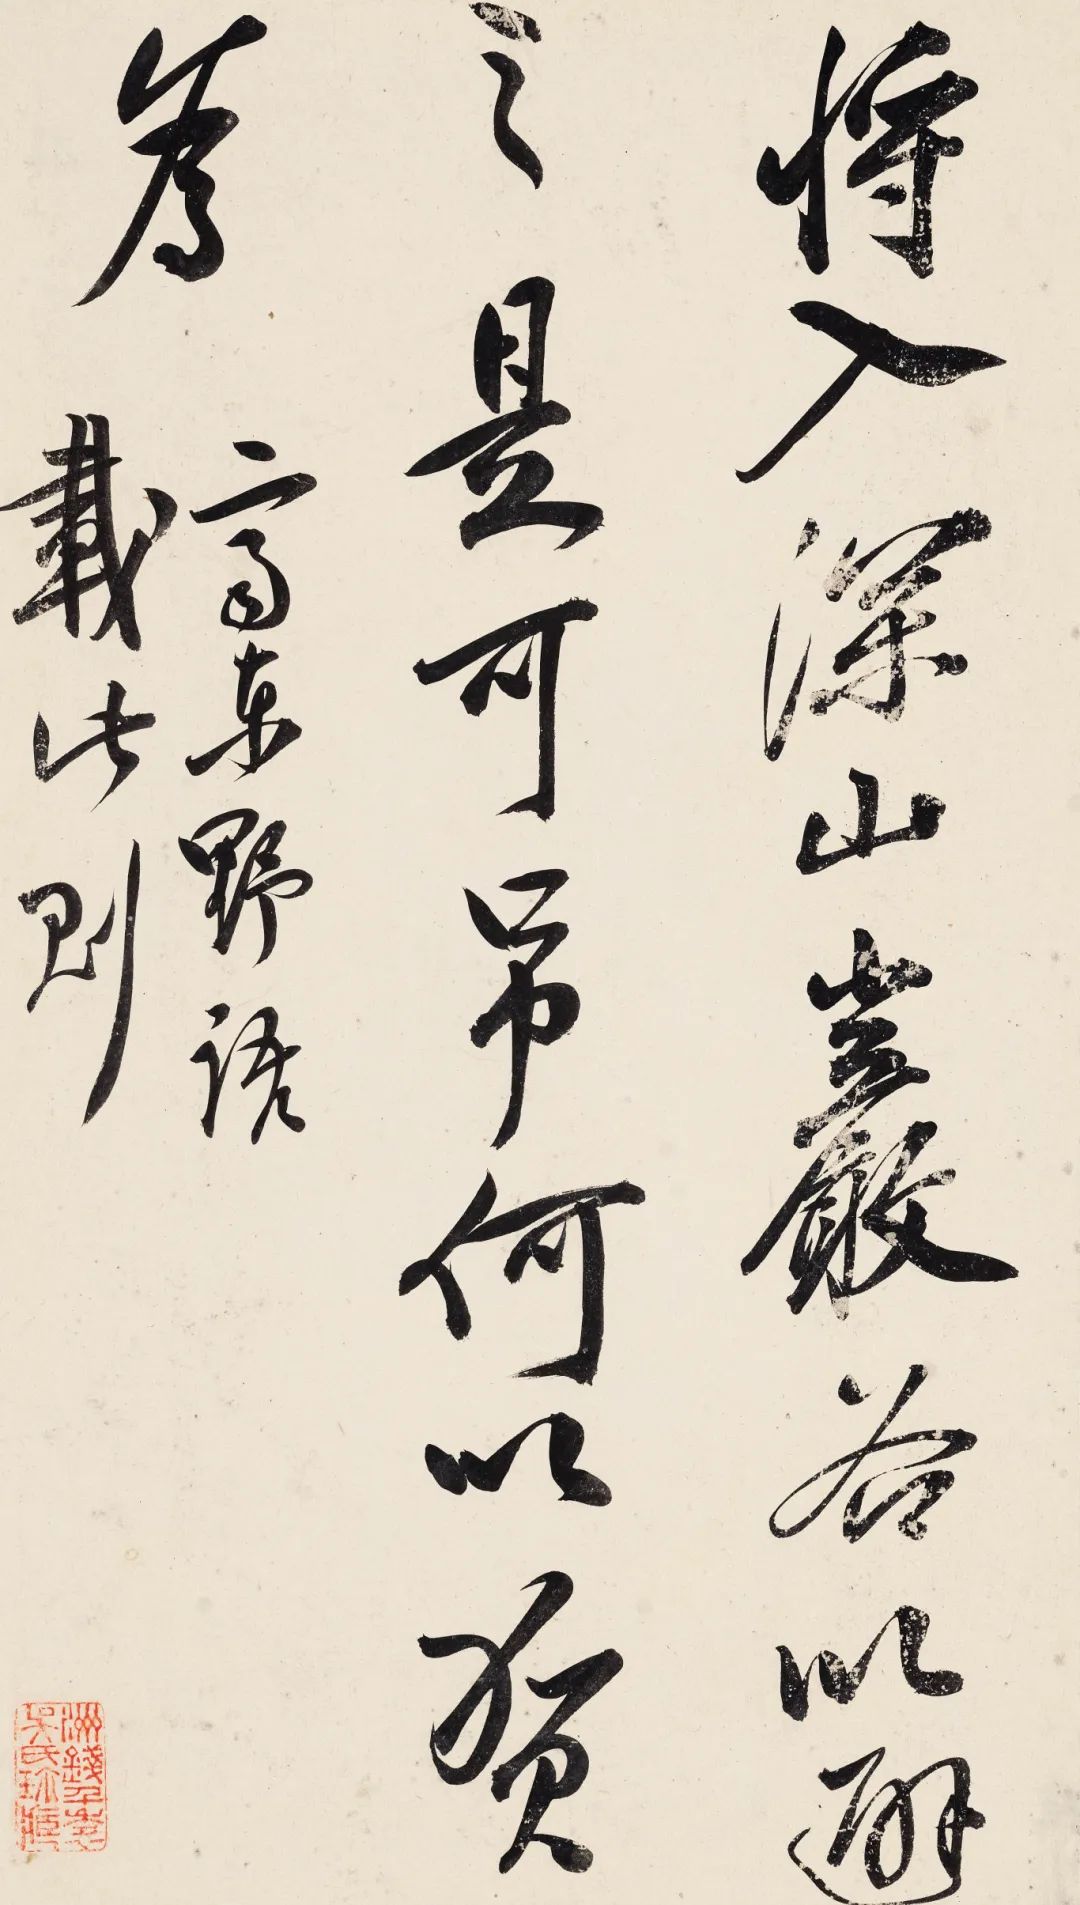 將入深山巖谷以避
之是可吊何以賀
為
齊東野語
載此則